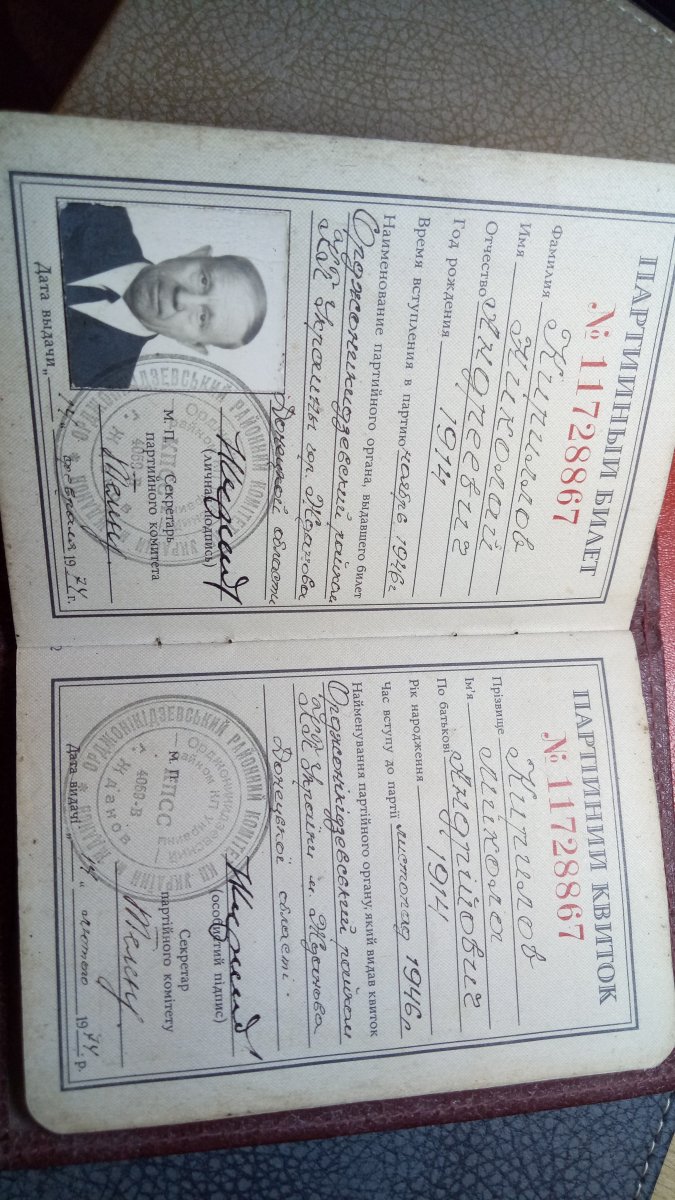 ПАРТИЙНЫЙ БИЛЕТ
№ 11728867
Фамилия Кириллов
Имя Николай
Отчество Андреевич
Год рождения 1914
Время вступления в партию ноябрь 1946 г
Наименование партийного органа, выдавшего билет
Орджоникидзевский райком
КП Украины гор. Жданова
Донецкой области
(личная подпись)
М. П. Секретарь
партийного комитета
Дата выдачи „14“ февраля 1974 г.
ОРДЖОНІКІДЗЕВСЬКИЙ РАЙОННИЙ КОМІТЕТ КП УКРАЇНИ
КПСС
4060-В
2
ПАРТІЙНИЙ КВИТОК
№ 11728867
Прізвище Кирилов
Ім'я Микола
По батькові Андрійович
Рік народження 1914
Час вступу до партії листопад 1946 р
Найменування партійного органу, який видав квиток
Орджонікідзевський райком
КП України м. Жданова
Донецької області.
(особистий підпис)
М. П. Секретар
партійного комітету
Дата видачі „14“ лютого 1974 р.
ОРДЖОНІКІДЗЕВСЬКИЙ РАЙОННИЙ КОМІТЕТ КП УКРАЇНИ
Орджоникидзевский
райком КП Украины
КПСС
4060-В
г. Жданов